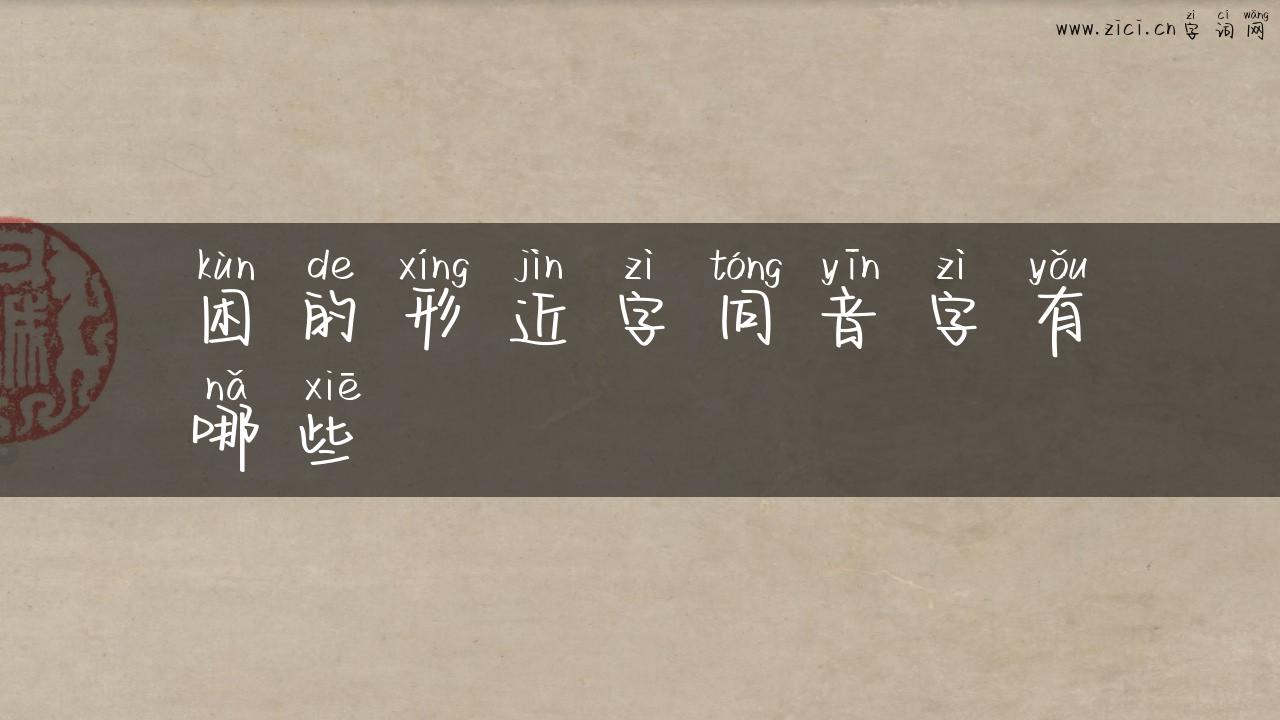 zì cí wǎng
www.zici.cn 字词网
kùn de xíng jìn zì tóng yīn zì yǒu
困的形近字同音字有
nǎ xiē
哪些